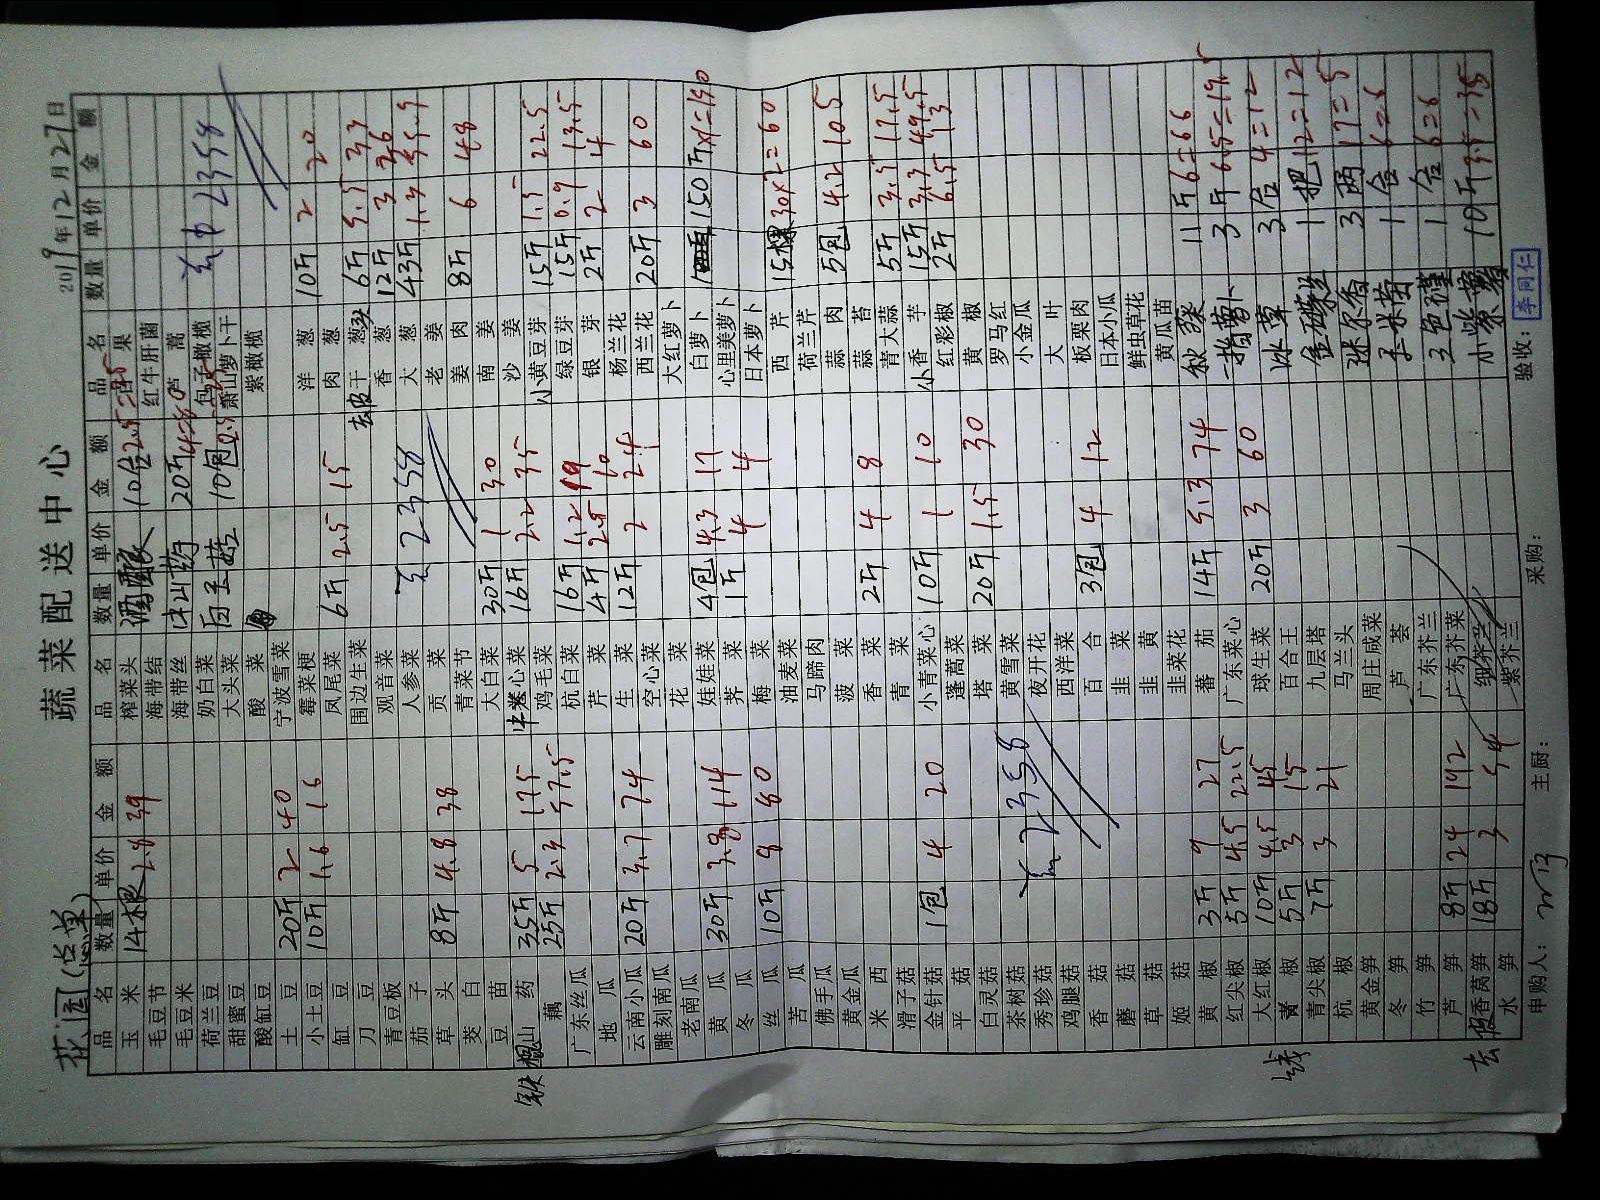 蔬菜配送中心
花园(总单) 2019年12月27日
品名 数量 单价 金额 品名 数量 单价 金额 品名 数量 单价 金额
玉米 14根 2.8 39
毛豆节
毛豆米
荷兰豆
甜蜜豆
酸缸豆
土豆 20斤 2 40
小土豆 10斤 1.6 16
缸豆
刀豆
青豆板
茄子
草头 8斤 4.8 38
茭白
豆苗
铁棍山药 35斤 5 175
藕 25斤 2.3 57.5
广东丝瓜
地瓜
云南小瓜 20斤 3.7 74
雕刻南瓜
老南瓜
黄瓜 30斤 3.8 114
冬瓜
丝瓜 10斤 8 80
苦瓜
佛手瓜
黄金瓜
米西
滑子菇
金针菇 1包 4 20
平菇
白灵菇
茶树菇
秀珍菇
鸡腿菇
香菇
蘑菇
草菇
姬菇
黄椒 3斤 9 27
红尖椒 5斤 4.5 22.5
大红椒 10斤 4.5 45
青椒 5斤 3 15
青尖椒 7斤 3 21
杭椒
黄金笋
冬笋
竹笋
芦笋 8斤 24 192
去皮香莴笋 18斤 3 54
水笋
榨菜头 酒酿
海带结
海带丝
奶白菜 白玉菇
大头菜
酸菜
宁波雪菜
霉菜梗
凤尾菜 6斤 2.5 15
围边生菜
观音菜
人参菜
贡菜
青菜节
大白菜 30斤 1 30
卷心菜 16斤 2.2 35
鸡毛菜
杭白菜 16斤 1.2 19
芹菜 4斤 2.5 10
生菜 12斤 2 24
空心菜
花菜
娃娃菜 4包 4.3 17
荠菜 1斤 4 4
梅菜
油麦菜
马蹄肉
菠菜
香菜 2斤 4 8
青菜
小青菜心 10斤 1 10
蓬蒿菜
塔菜 20斤 1.5 30
黄雪菜
夜开花
西洋菜
百合 3包 4 12
韭菜
韭黄
韭菜花
蕃茄 14斤 5.3 74
广东菜心
球生菜 20斤 3 60
百合王
九层塔
马兰头
周庄咸菜
芦荟
广东芥兰
广东芥菜
紫芥兰
红牛肝菌
芦蒿
包子橄榄
萧山萝卜干
紫橄榄
洋葱 10斤 2 20
肉葱
去皮干葱头 6斤 5.5 33
香葱 12斤 3 36
大葱 43斤 1.3 55.9
老姜
姜肉 8斤 6 48
南姜
沙姜
小黄豆芽 15斤 1.5 22.5
绿豆芽 15斤 0.9 13.5
银芽 2斤 2 4
杨兰花
西兰花 20斤 3 60
大红萝卜
白萝卜 150斤×1=150
心里美萝卜
日本萝卜
西芹 15棵 30×2=60
荷兰芹
蒜肉 5包 4.2 10.5
蒜苔
青大蒜 5斤 3.5 17.5
小香芋 15斤 3.3 49.5
红彩椒 2斤 6.5 13
黄椒
罗马红
小金瓜
大叶
板栗肉
日本小瓜
鲜虫草花
黄瓜苗
秋葵 11斤 6=66
一指萝卜 3斤 6.5=19.5
冰草 3合 4=12
1把 12=12
3两 17=5
玉米苗 1合 6=6
三色堇 1合 6=6
小紫薯 10斤 3.5=35
共 2358
申购人: 主厨: 采购: 验收: 李同仁